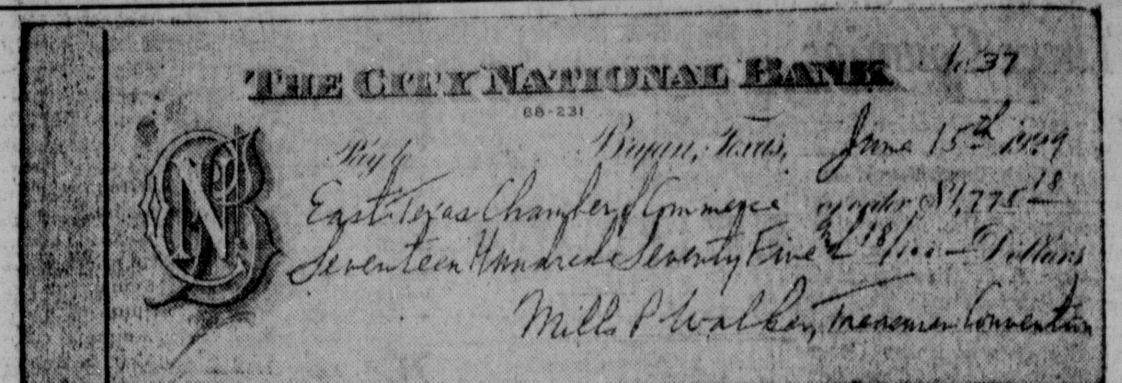 THE CITY NATIONAL BANK No. 37
88-231
Pay to Bryan, Texas, June 15th 1929
East Texas Chamber of Commerce or order $1,775 18
Seventeen Hundred Seventy Five & 18/100 — Dollars
Mills P Walker, Treasurer Convention
CNB